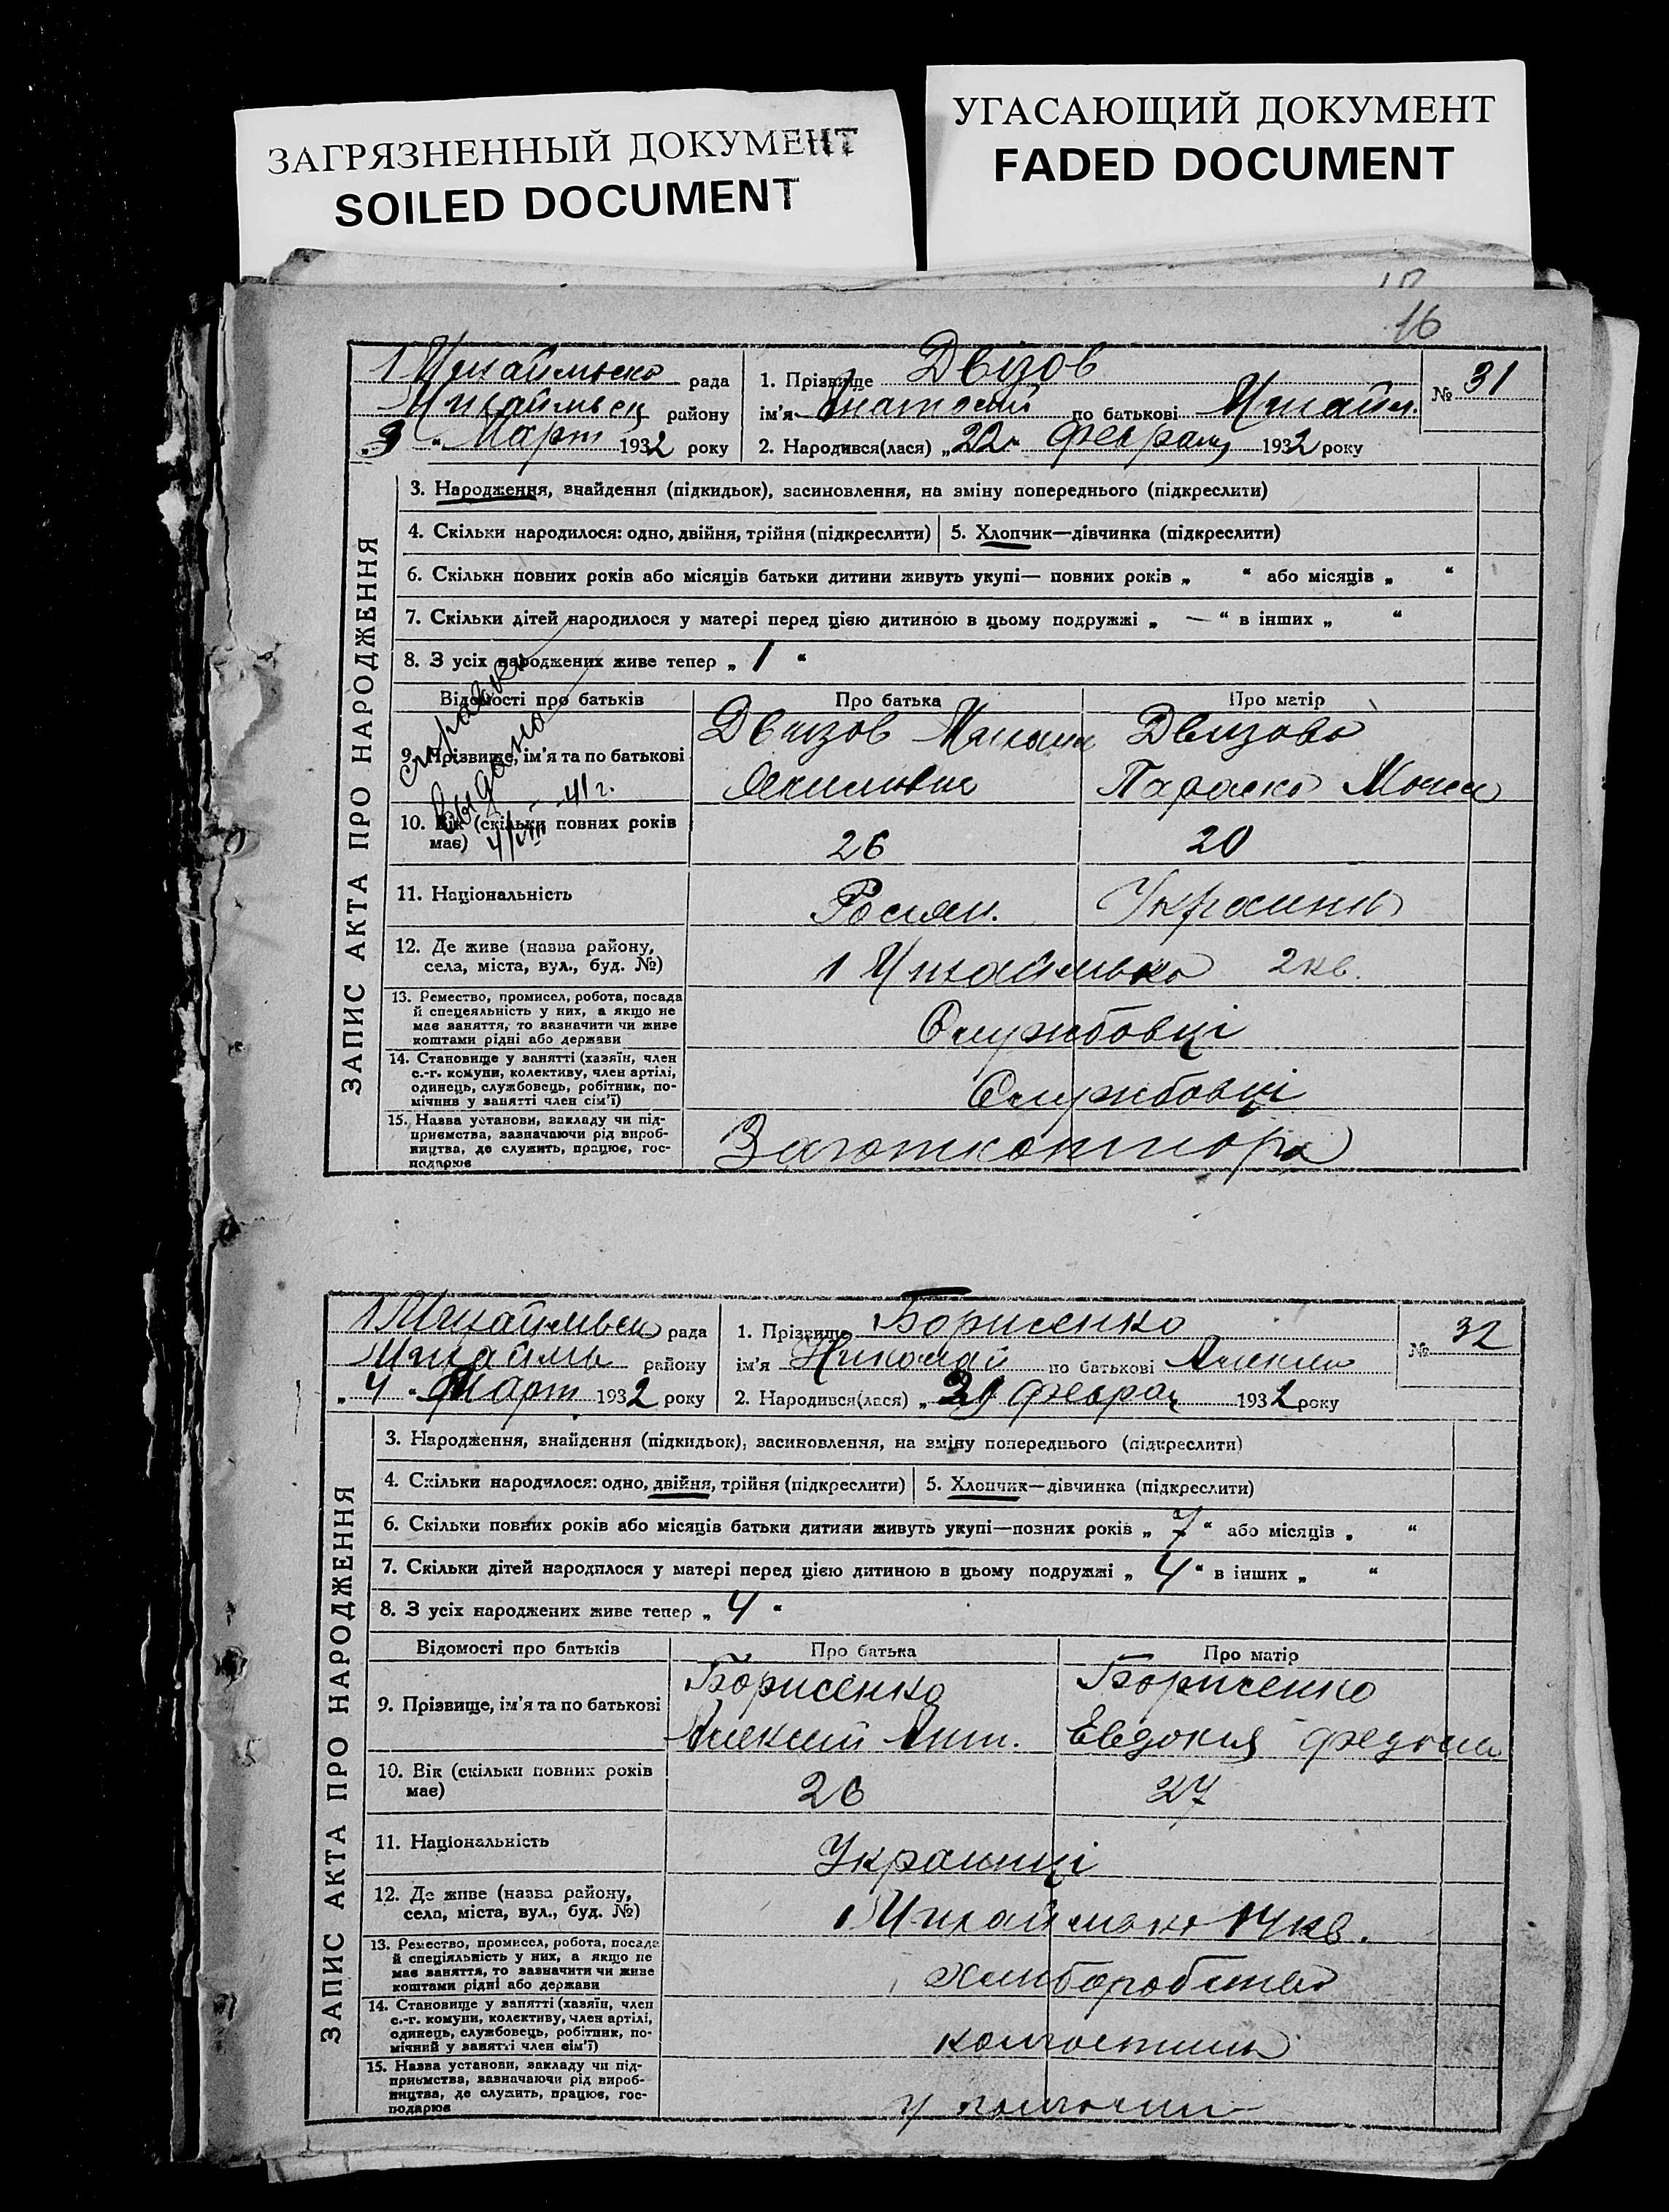 ЗАГРЯЗНЕННЫЙ ДОКУМЕНТ
SOILED DOCUMENT
УГАСАЮЩИЙ ДОКУМЕНТ
FADED DOCUMENT
16
ЗАПИС АКТА ПРО НАРОДЖЕННЯ
рада
району
„3“ Март 1932 року
1. Прізвище Двізов
ім'я по батькові
№ 31
2. Народився(лася) „22“ Февраля 1932 року
3. Народження, знайдення (підкидьок), засиновлення, на зміну попереднього (підкреслити)
4. Скільки народилося: одно, двійня, трійня (підкреслити)
5. Хлопчик—дівчинка (підкреслити)
6. Скільки повних років або місяців батьки дитини живуть укупі— повних років „ “ або місяців „ “
7. Скільки дітей народилося у матері перед цією дитиною в цьому подружжі „ — “ в інших „ “
8. З усіх народжених живе тепер „ 1 “
справка
выдана
4/VIII-41 г.
Відомості про батьків
Про батька
Про матір
9. Прізвище, ім'я та по батькові
Двизов
Двизова
Параска
10. Вік (скільки повних років
має)
26
20
11. Національність
Росіян.
Украинка
12. Де живе (назва району,
села, міста, вул., буд. №)
1 2 кв.
13. Ремество, промисел, робота, посада
й спецеяльність у них, а якщо не
має заняття, то зазначити чи живе
коштами рідні або держави
Службовці
14. Становище у занятті (хазяїн, член
с.-г. комуни, колективу, член артілі,
одинець, службовець, робітник, по-
мічник у занятті член сім'ї)
Службовці
15. Назва установи, закладу чи під-
приємства, зазначаючи рід вироб-
ництва, де служить, працює, гос-
подарює
Заготконтора
ЗАПИС АКТА ПРО НАРОДЖЕННЯ
рада
району
„4“ Март 1932 року
1. Прізвище Борисенко
ім'я Николай по батькові Алексее
№ 32
2. Народився(лася) „ Феврал 1932 року
3. Народження, знайдення (підкидьок), засиновлення, на зміну попереднього (підкреслити)
4. Скільки народилося: одно, двійня, трійня (підкреслити)
5. Хлопчик—дівчинка (підкреслити)
6. Скільки повних років або місяців батьки дитини живуть укупі—повних років „ 7 “ або місяців „ “
7. Скільки дітей народилося у матері перед цією дитиною в цьому подружжі „ 4 “ в інших „ “
8. З усіх народжених живе тепер „ 4 “
Відомості про батьків
Про батька
Про матір
9. Прізвище, ім'я та по батькові
Борисенко
Алексей Ант.
Борисенко
Евдокия
10. Вік (скільки повних років
має)
26
27
11. Національність
Украинці
12. Де живе (назва району,
села, міста, вул., буд. №)
кв.
13. Ремество, промисел, робота, посада
й спеціяльність у них, а якщо не
має заняття, то зазначити чи живе
коштами рідні або держави
14. Становище у занятті (хазяїн, член
с.-г. комуни, колективу, член артілі,
одинець, службовець, робітник, по-
мічний у занятті член сім'ї)
15. Назва установи, закладу чи під-
приємства, зазначаючи рід вироб-
ництва, де служить, працює, гос-
подарює